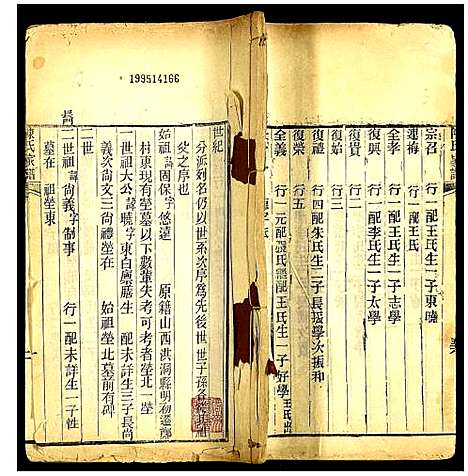 199514166
宗召 行一配王氏生一子東曉
連梅 行一配王氏
全孝 行一配王氏生一子志學
復興 行一配李氏生一子太學
復貴 行二
復始 行三
復禮 行四配朱氏生二子長振學次振和
復榮 行五
全義 行一元配張氏繼配王氏生一子好學王氏出
世紀
分派列名仍以世系次序為先後世世子孫各
始祖諱固保字悠遠 原籍山西洪洞縣明初遷
村東現有塋墓以下數輩失考可考者塋北一塋
一世祖大公諱曉字東白廩膳生 配未詳生三子長尚
義次尚文三尚禮塋在 始祖塋北墓前有碑
二世
二世祖諱尚義字制事 行一配未詳生一子性
墓在 祖塋東
陳氏家譜